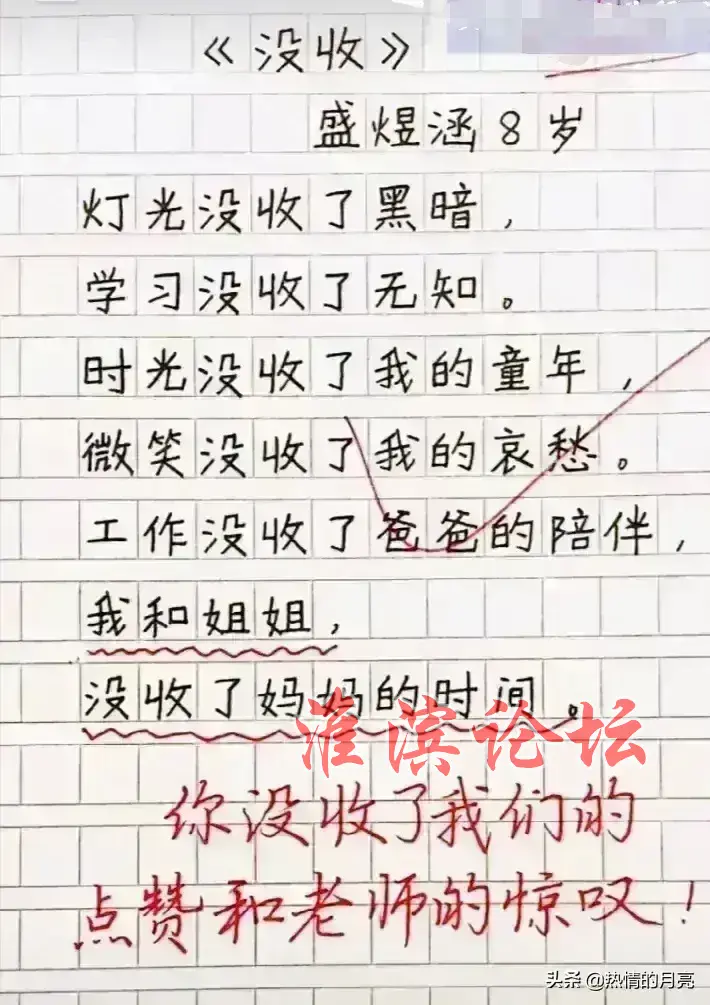 《没收》
盛煜涵8岁
灯光没收了黑暗，
学习没收了无知。
时光没收了我的童年，
微笑没收了我的哀愁。
工作没收了爸爸的陪伴，
我和姐姐，
没收了妈妈的时间。
淮滨论坛
你没收了我们的
点赞和老师的惊叹！
头条 @热情的月亮